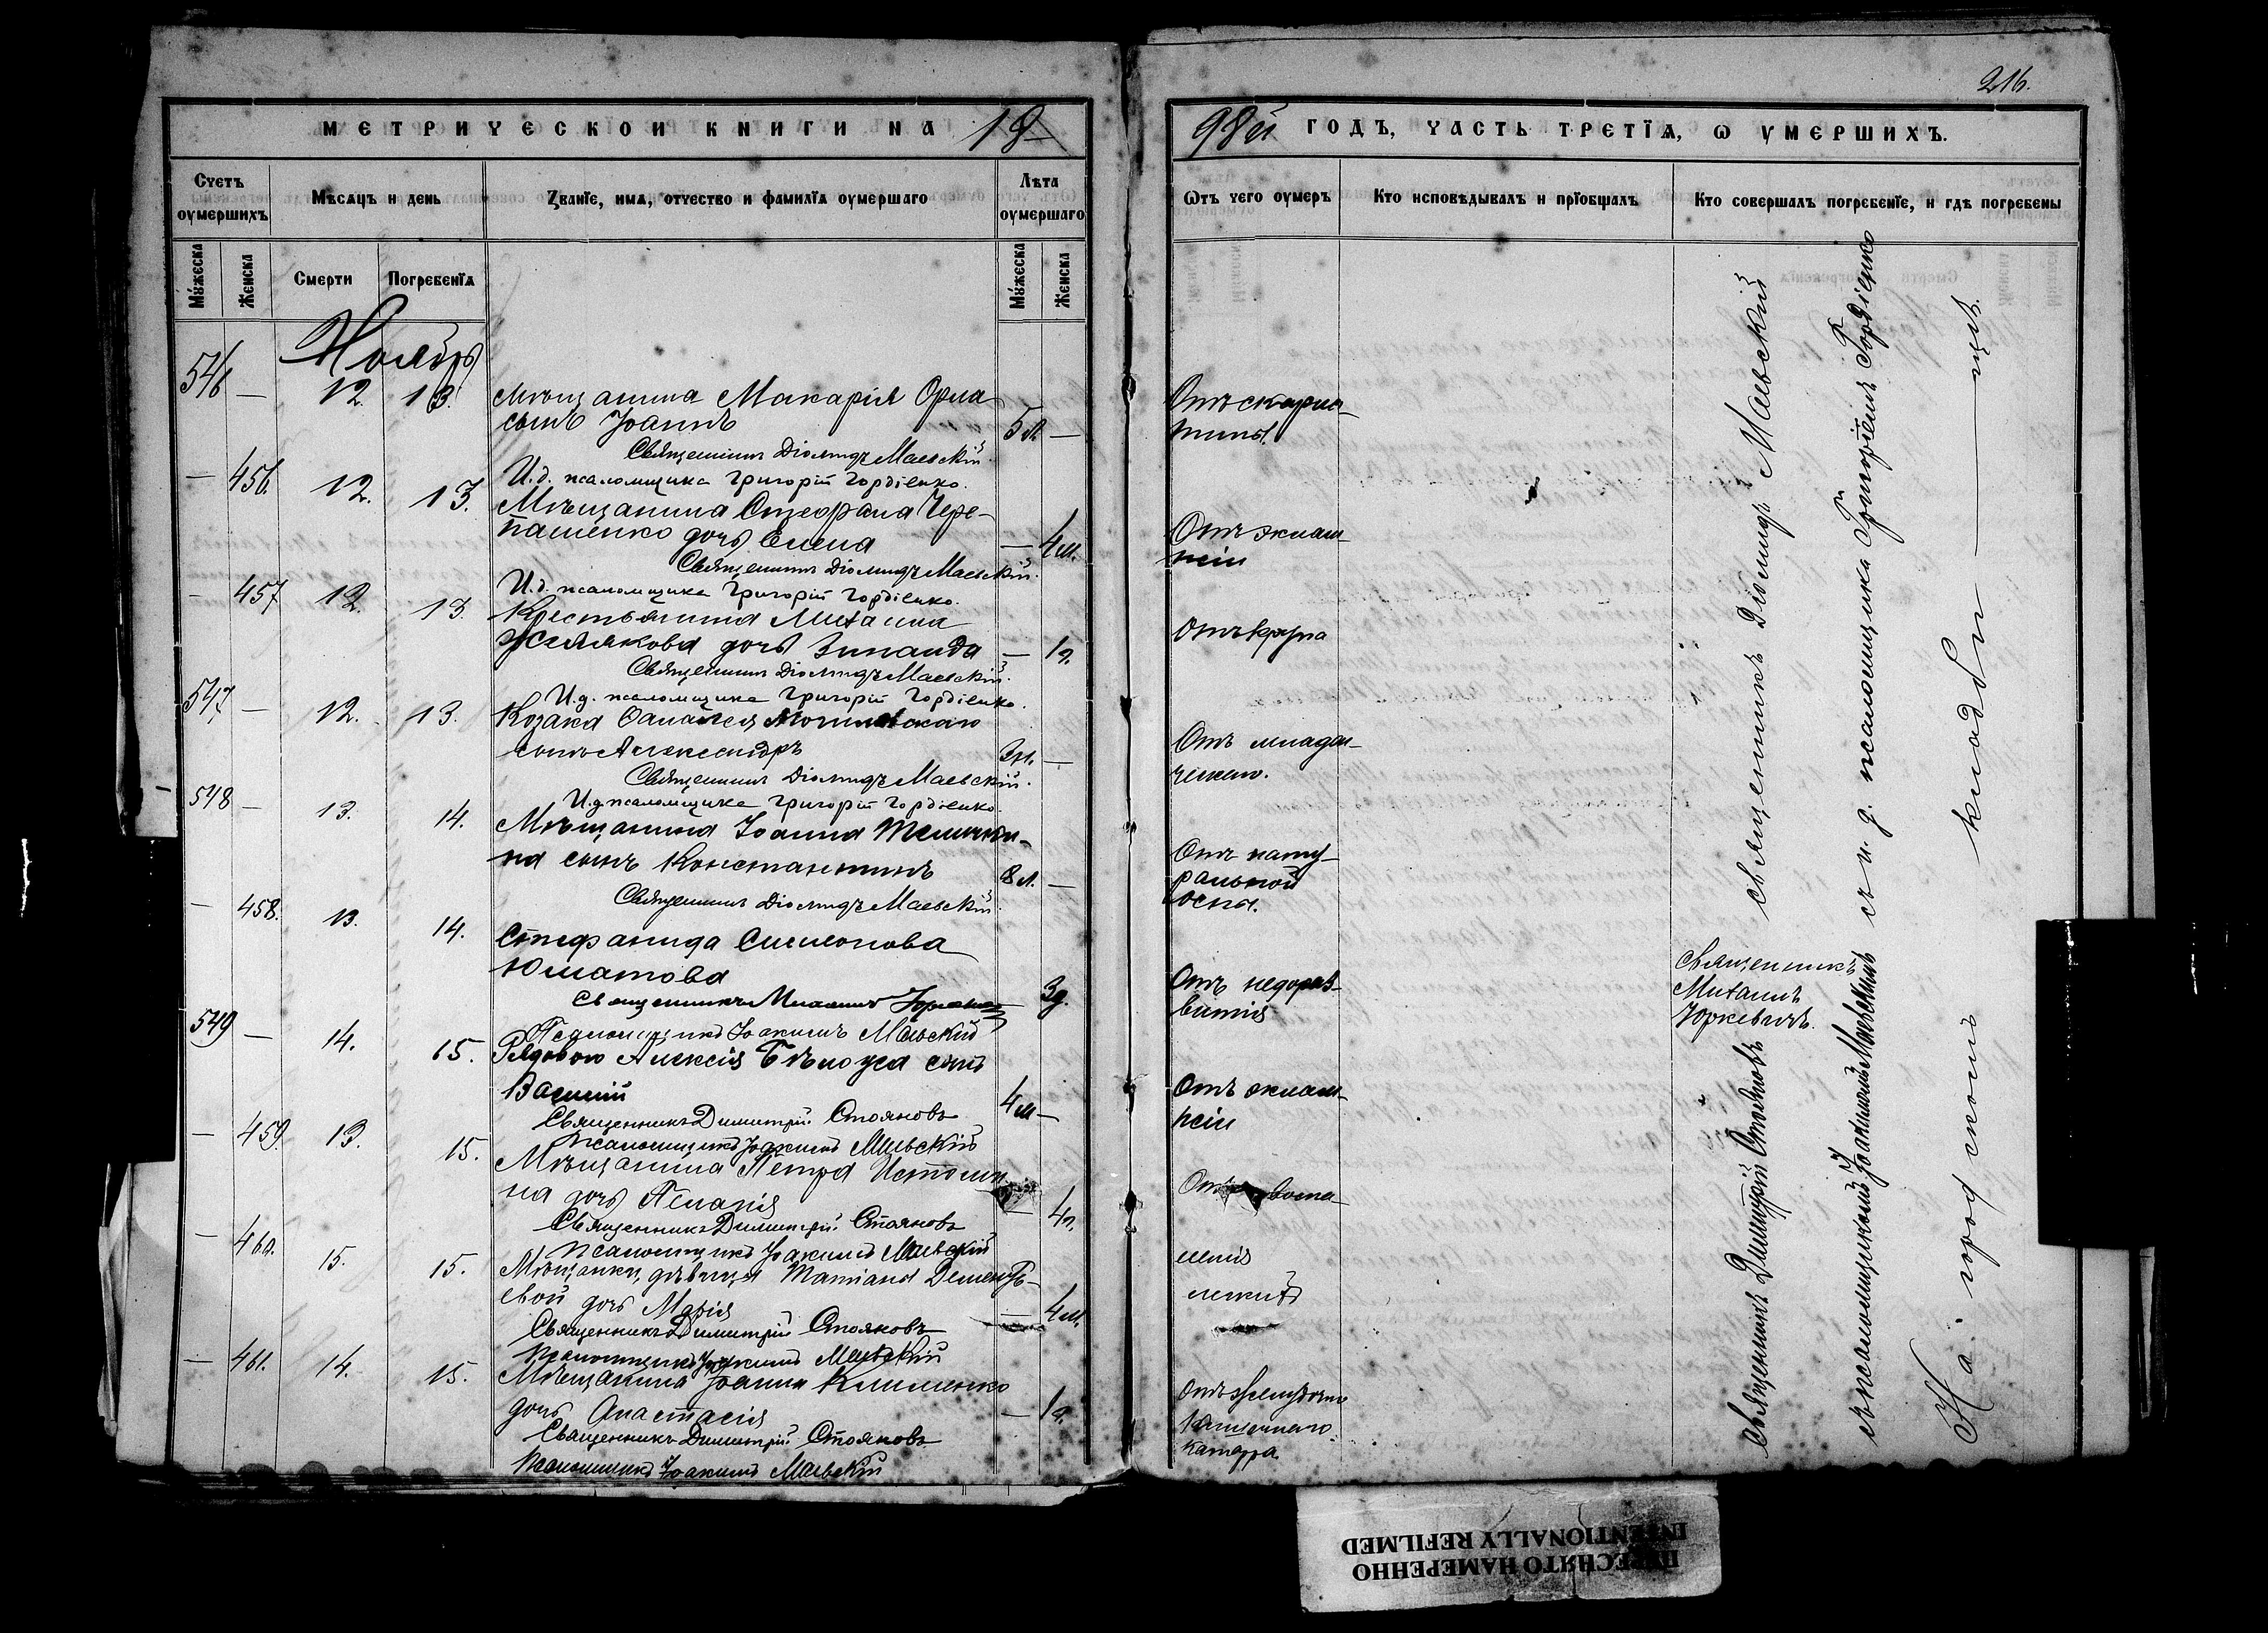 216.
МЕТРИЧЕСКОЙ КНИГИ НА 18
98й ГОДЪ, ЧАСТЬ ТРЕТЇѦ, Ѡ УМЕРШИХЪ.
Счетъ оумершихъ
Мѣсѧцъ и день
Званїе, имѧ, отчество и фамилїѧ оумершаго
Лѣта оумершаго
Ѿтъ чего оумеръ
Кто исповѣдывалъ и прїобщалъ
Кто совершалъ погребенїе, и гдѣ погребены
Мужеска
Женска
Смерти
Погребенїѧ
Мужеска
Женска
Ноябрь
546 — 12. 13. Мѣщанина Макарія Орла
сынъ Іоаннъ 5 л. —
Отъ скарла-
тины.
Священникъ Діомидъ Маевскій
И. д. псаломщика Григорій Гордіенко.
— 456. 12. 13. Мѣщанина Стефана Чере-
пашенко дочь Елена — 4 м.
Отъ эклам-
псіи
Священникъ Діомидъ Маевскій.
И. д. псаломщика Григорій Гордіенко.
— 457 12. 13. Крестьянина Михаила
дочь Зинаида — 1 г.
Отъ крупа
Священникъ Діомидъ Маевскій.
И. д. псаломщика Григорій Гордіенко.
547 — 12. 13. Козака
сынъ Александръ —
Отъ младен-
ческаго.
Священникъ Діомидъ Маевскій.
И. д. псаломщика Григорій Гордіенко.
548 — 13. 14. Мѣщанина Іоанна
на сынъ Константинъ 8 л. —
Отъ нату-
ральной
оспы.
Священникъ Діомидъ Маевскій.
— 458. 13. 14. Стефанида Симонова
Юматова 3 д.
Отъ недораз-
витія
Священникъ Михаилъ Юркевичъ
Псаломщикъ Іоакимъ Маевскій
Священникъ
Михаилъ
Юркевичъ.
549 — 14. 15. Рядового Алексія Бѣлоуса сынъ
Василій 4 м —
Отъ эклам-
псіи
Священникъ Димитрій Стояновъ
Псаломщикъ Іоакимъ Маевскій
— 459. 13. 15. Мѣщанина Петра Истоми-
на дочь — 4 г.
Отъ воспа-
ленія
легкихъ
Священникъ Димитрій Стояновъ
Псаломщикъ Іоакимъ Маевскій
— 460. 15. 15. Мѣщанки, дѣвицы Татіаны Дементь-
евой дочь Марія — 4 м.
Священникъ Димитрій Стояновъ
Псаломщикъ Іоакимъ Маевскій
— 461. 14. 15. Мѣщанина Іоанна Клименко
дочь Анастасія — 1 г.
Отъ желудочно
кишечнаго
катарра
Священникъ Димитрій Стояновъ
Псаломщикъ Іоакимъ Маевскій
священникъ Діомидъ Маевскій
съ и. д. псаломщика Григоріемъ Гордіенко
Священникъ Димитрій Стояновъ
съ псаломщикомъ Іоакимомъ Маевскимъ
На городскомъ кладби — щѣ.
ПЕРЕСНЯТО НАМЕРЕННО
INTENTIONALLY REFILMED